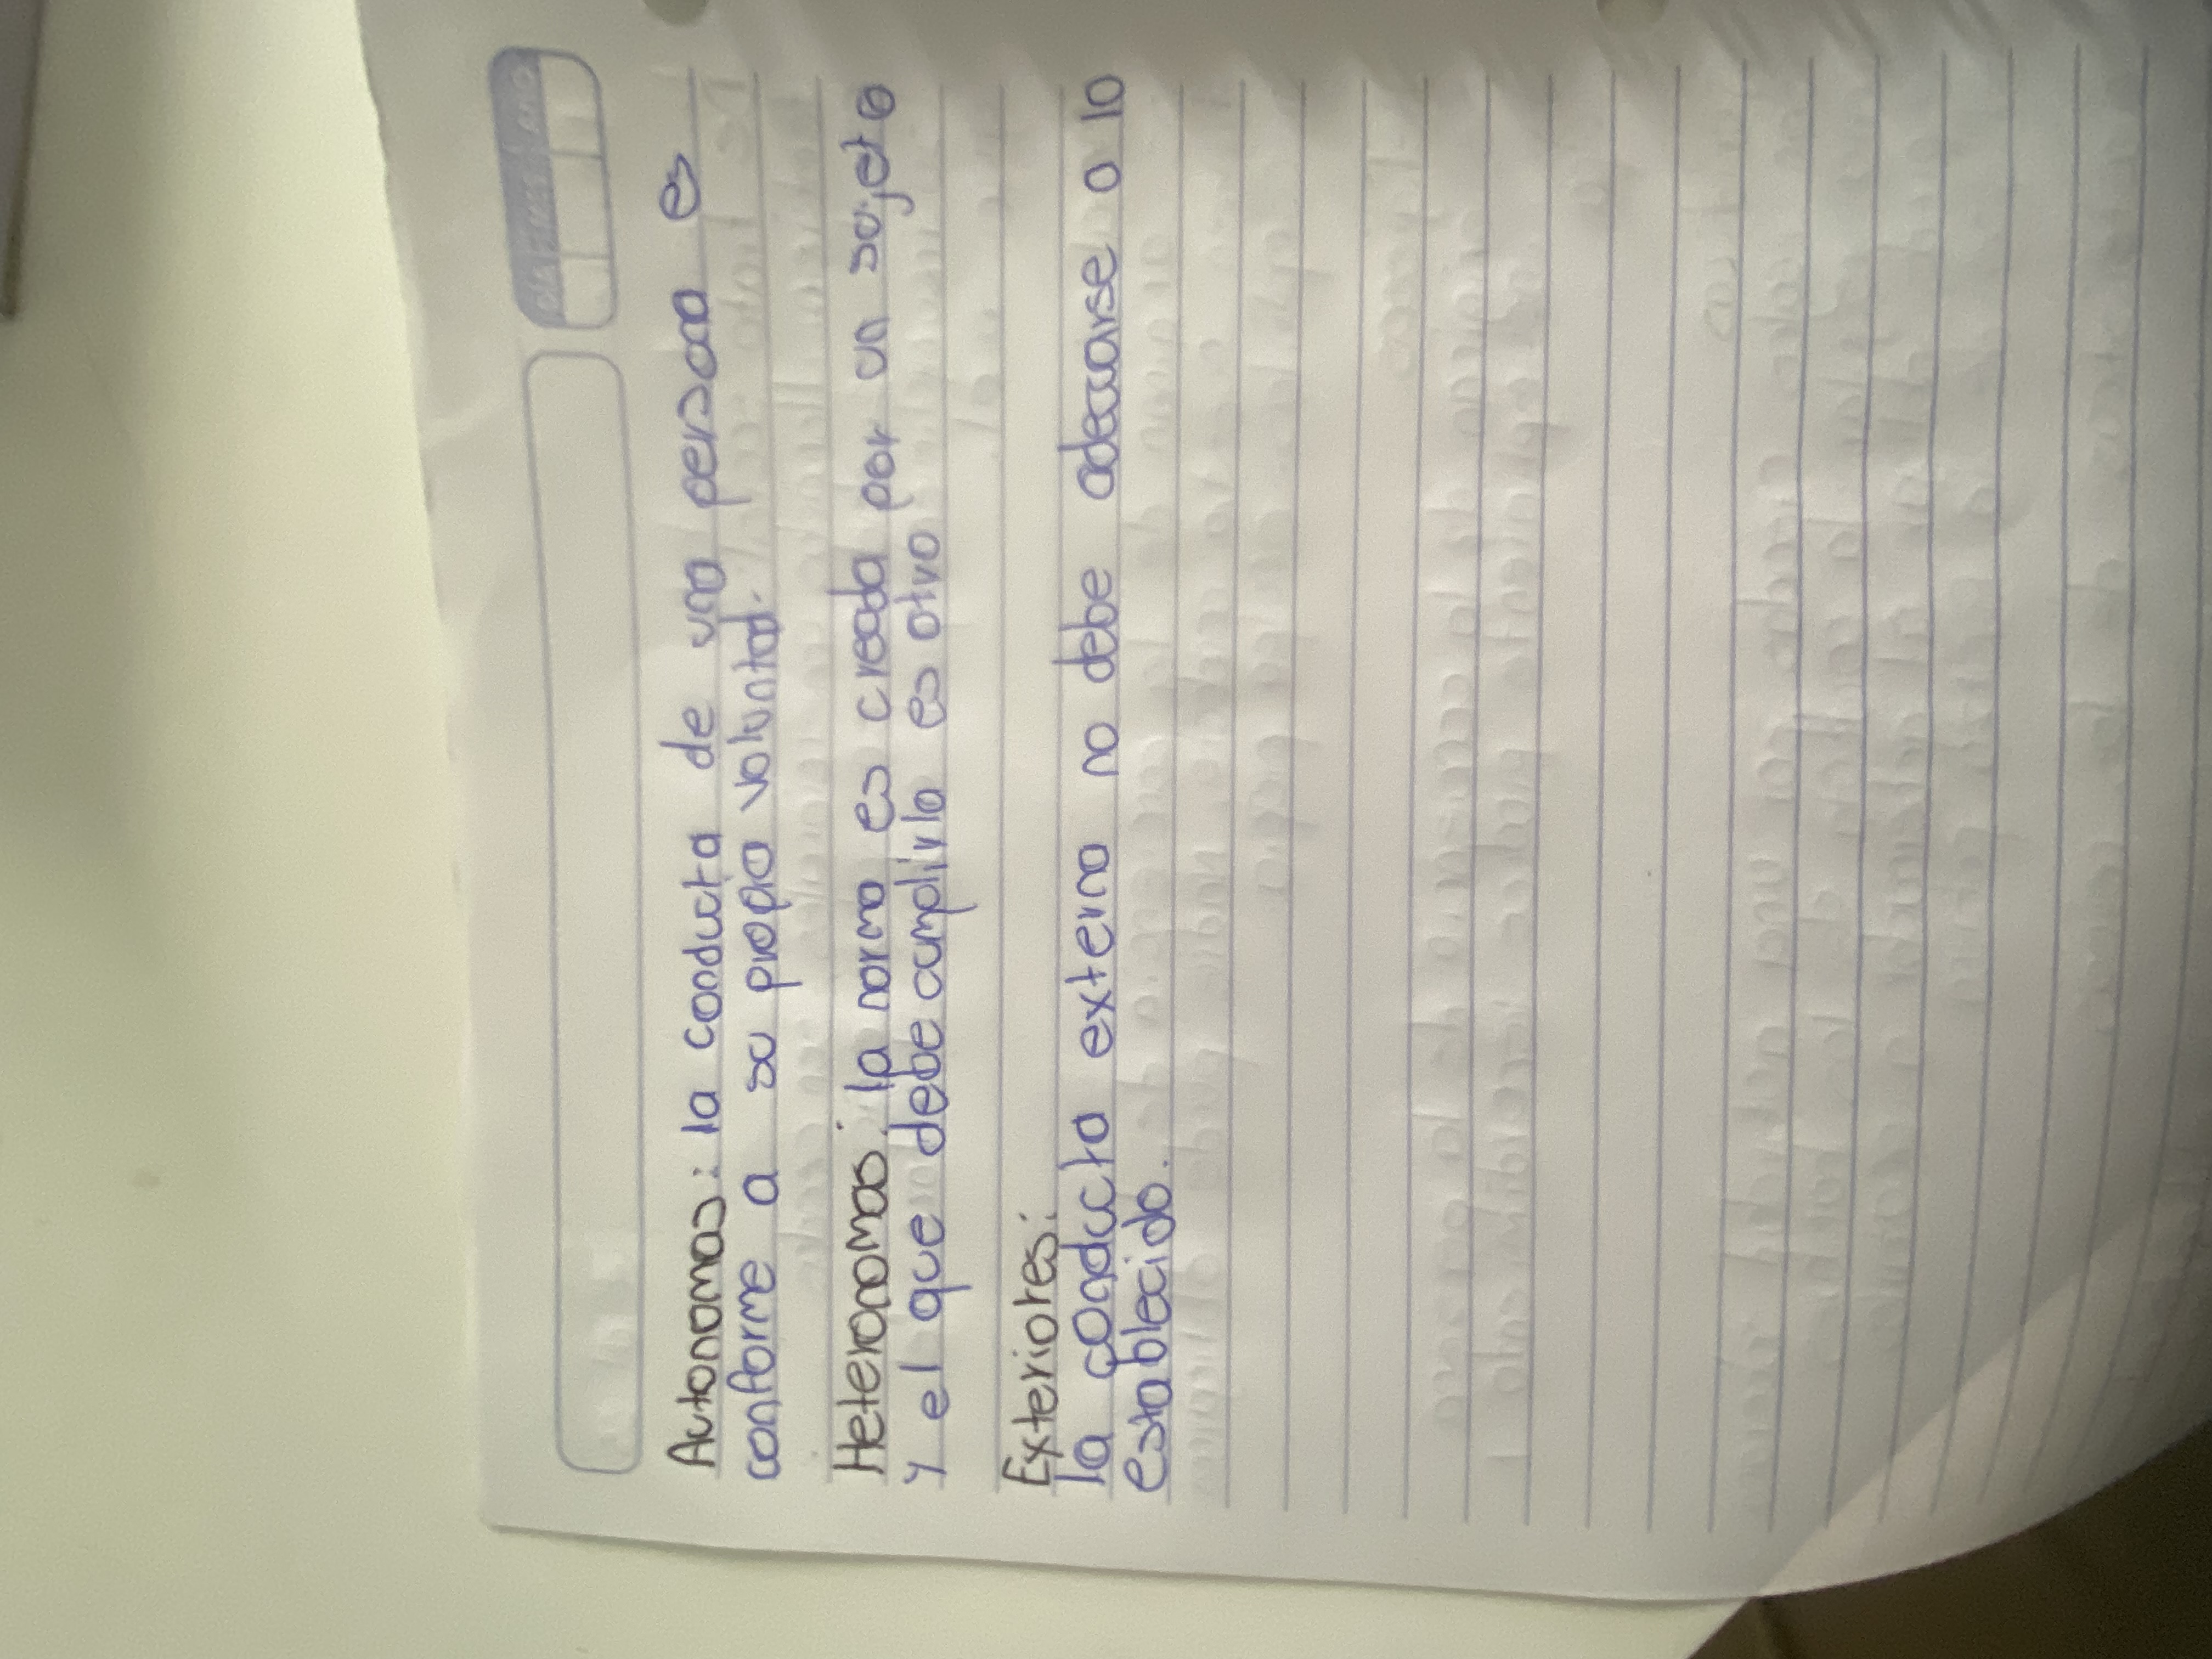 día mes año
Autonomas: la conducta de una persona es
conforme a su propia voluntad.
Heteronomas: la norma es creada por un sujeto
y el que debe cumplirla es otro
Exteriores:
la conducta externa no debe adecuarse a lo
establecido.